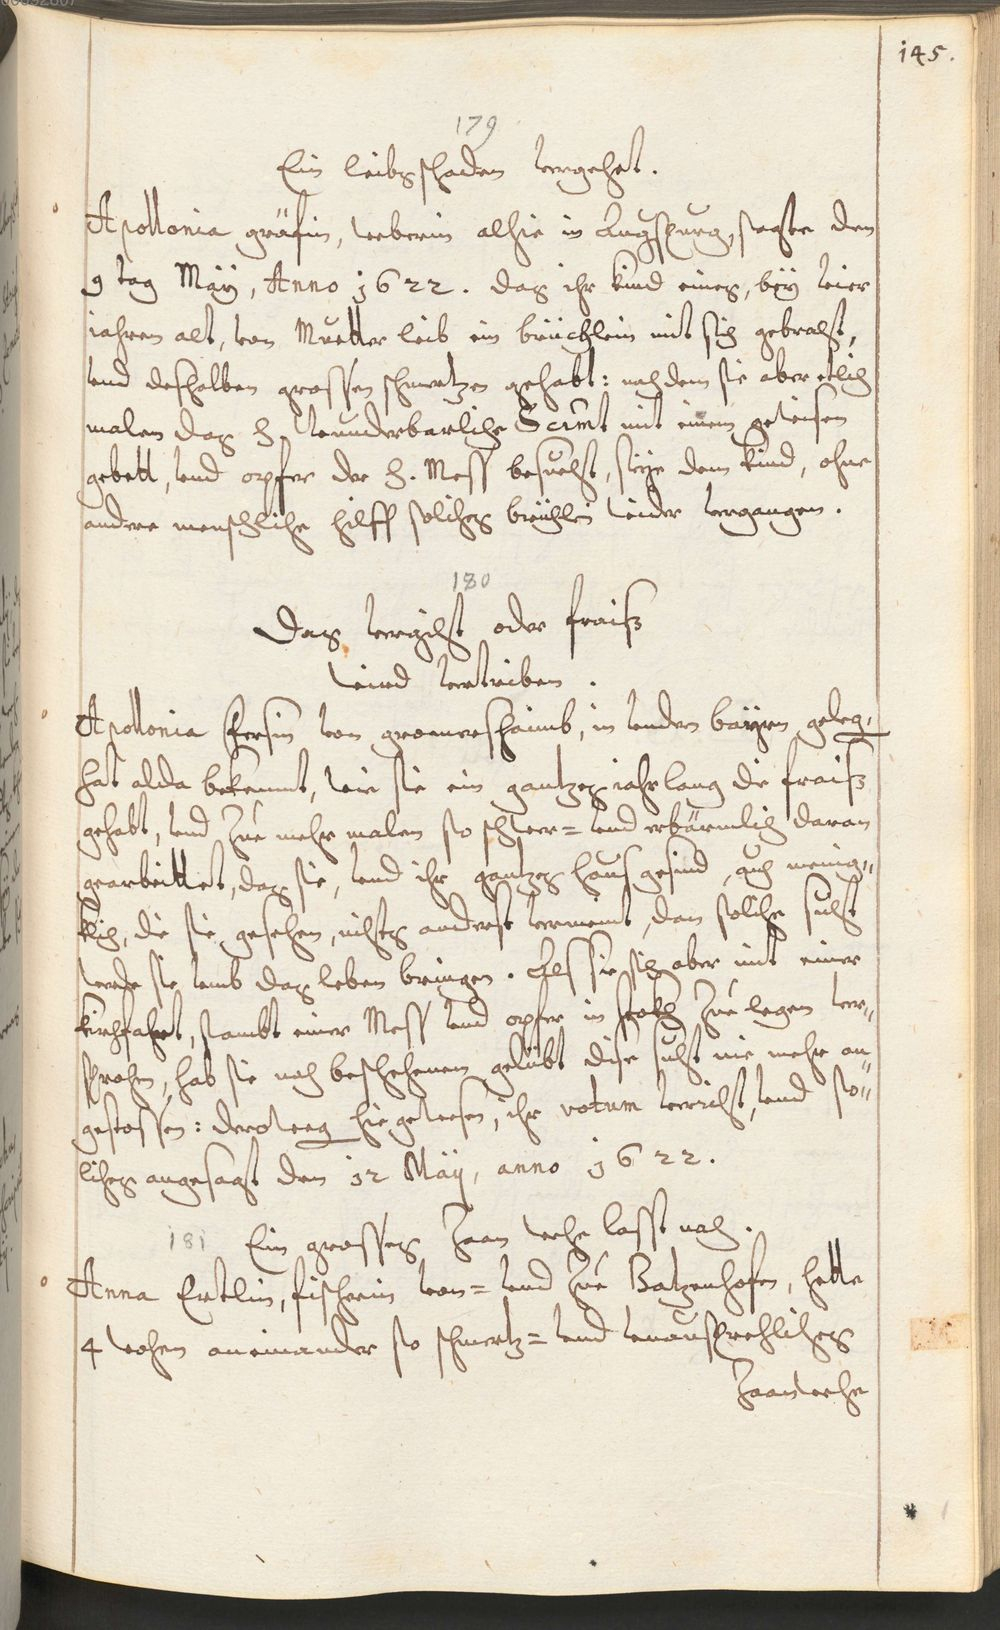 145.
179
Ein leibsschaden vergehet.
Apollonia gräfin, weberin alhie in Augspurg, sagte den
9 tag Maÿ, Anno 1622. das ihr kind eines, beÿ vier
jahren alt, von Muetter leib ein brüchlein mit sich gebracht,
vnd deshalben grossen schmertzen gehabt: nachdem sie aber etlich
malen das H. wunderbarliche Scrmt mit einem gewisen
gebett, vnd opfer der H. Mess besucht, seÿe dem kind, ohne
andere menschliche hilff solches brüchlein wider vergangen.
180
Das vergicht oder fraiß
wird vertriben.
Apollonia von in vndern baÿrn geleg.
hat alda bekennt, wie sie ein gantzes jahr lang die fraiß
gehabt, vnd zue mehr malen so schwer= vnd erbärmlich daran
gearbeittet, das sie, vnd ihr gantzes hausgesind, auch menig=
klich, die sie gesehen, nichts anderst vermeint, dan solche sucht
werde sie vmb das leben bringen. Als sie sich aber mit einer
kirchfahrt, sambt einer Mess vnd opfer in stokh zue legen ver=
sprochen, hab sie nach beschehenem gelübt dise sucht nie mehr an=
gestossen: deroweg hie gewesen, ihr votum verricht, vnd so=
liches angesagt den 12 Maÿ, anno 1622.
181
Ein grosses zaan wehe lasst nach.
Anna Ertlin, fischerin von= vnd zue Batzenhofen, hette
4 wochen aneinander so schmertz= vnd vnaussprechliches
zaanwehe